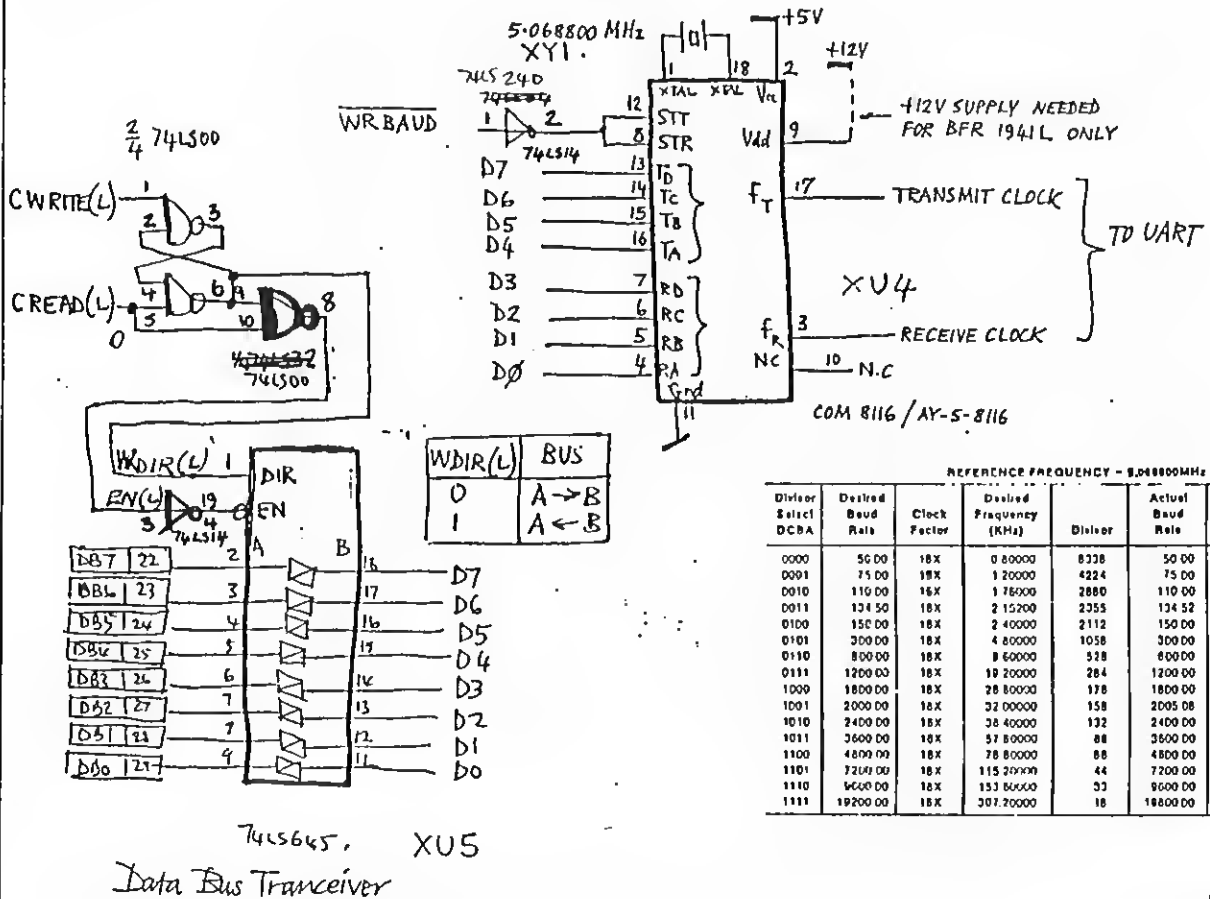 5.068800 MHz
XY1.
+5V
+12V
1
18
2
XTAL XTAL Vcc
74LS 240
WRBAUD
1
2
74LS14
12 STT
8 STR
+12V SUPPLY NEEDED
FOR BFR 1941L ONLY
Vdd 9
D7 13 TD
D6 14 TC
D5 15 TB
D4 16 TA
D3 7 RD
D2 6 RC
D1 5 RB
DØ 4 RA
Gnd
11
fT 17 TRANSMIT CLOCK
TO UART
XU4
fR 3 RECEIVE CLOCK
NC 10 N.C
COM 8116 / AY-5-8116
2/4 74LS00
CWRITE(L) 1
2
3
4
CREAD(L) 5
0
6
9
10
8
74LS32
74LS00
WDIR(L) 1 DIR
EN(L) 3
4
19 EN
74LS14
A B
WDIR(L) BUS
0 A→B
1 A←B
DB7 22 2 18 D7
DB6 23 3 17 D6
DB5 24 4 16 D5
DB4 25 5 15 D4
DB3 26 6 14 D3
DB2 27 7 13 D2
DB1 28 12 D1
DB0 9 11 D0
74LS645. XU5
Data Bus Tranceiver
REFERENCE FREQUENCY - 5.068800MHz
Divisor Select DCBA
Desired Baud Rate
Clock Factor
Desired Frequency (KHz)
Divisor
Actual Baud Rate
0000 50 00 16X 0 80000 50 00
0001 75 00 16X 1 20000 4224 75 00
0010 110 00 16X 1 76000 2880 110 00
0011 134 50 16X 2 15200 2355 134 52
0100 150 00 16X 2 40000 2112 150 00
0101 300 00 16X 4 80000 1056 300 00
0110 600 00 16X 9 60000 528 600 00
0111 1200 00 16X 19 20000 264 1200 00
1000 1800 00 16X 28 80000 176 1800 00
1001 2000 00 16X 32 00000 158 2005 06
1010 2400 00 16X 38 40000 132 2400 00
1011 3600 00 16X 57 60000 88 3600 00
1100 4800 00 16X 76 80000 66 4800 00
1101 7200 00 16X 115 20000 44 7200 00
1110 9600 00 16X 153 60000 33 9600 00
1111 19200 00 16X 307.20000 16 19800 00